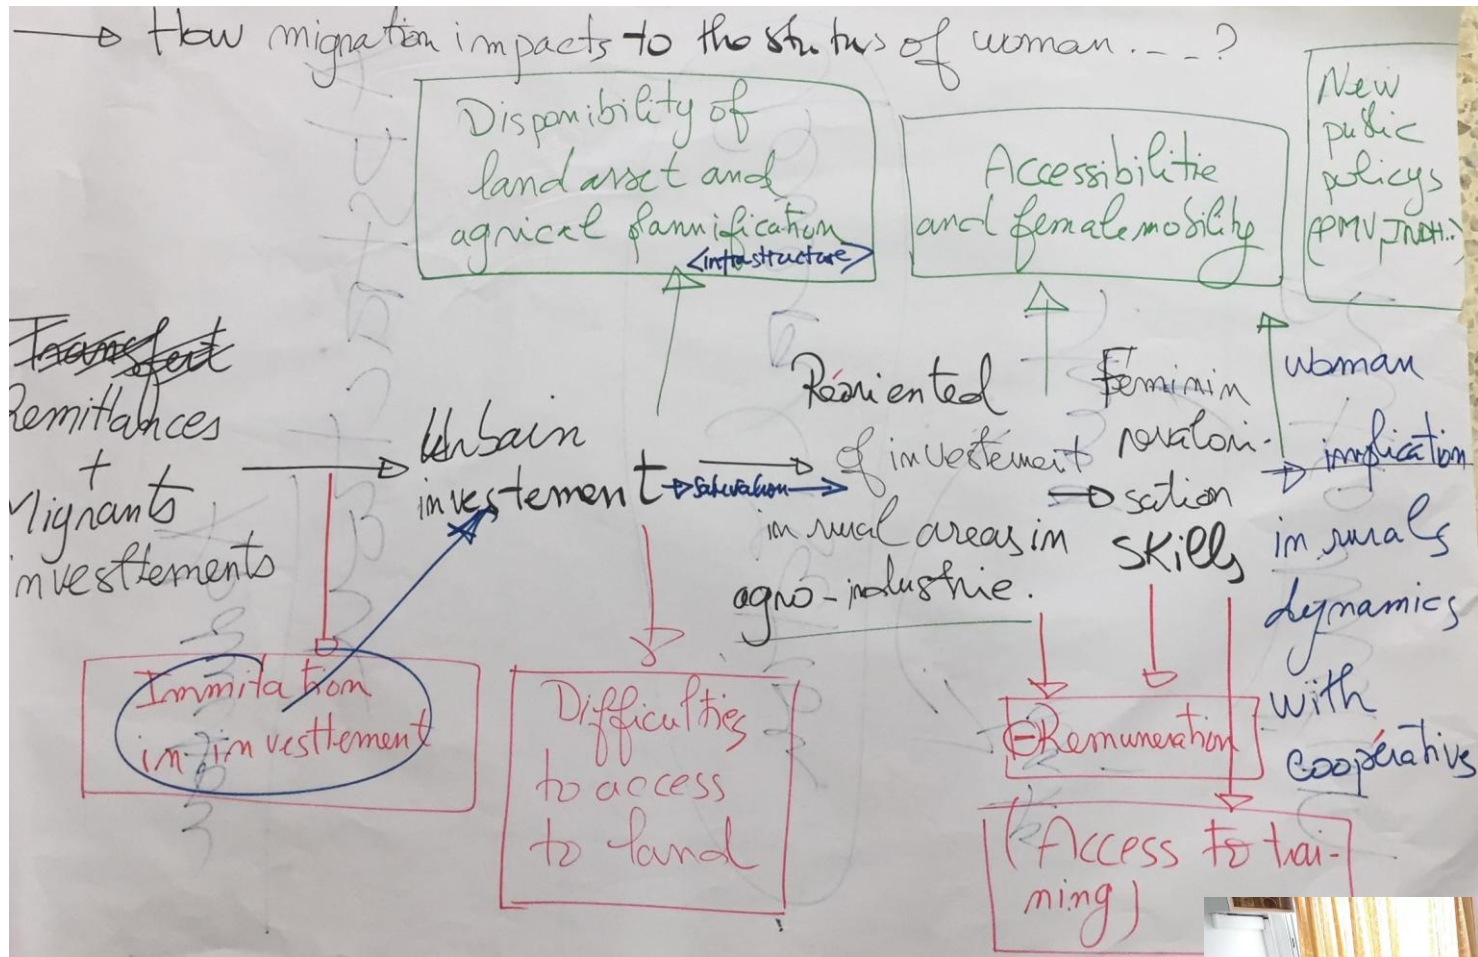 How migration impacts to the status of woman...?
Disponibility of
land asset and
agrical plannification
<infrastructure>
Accessibilitie
and female mobility
New
public
policys
(PMV, INDH..)
Transfert
Remittances
+
Migrants
investtements
Urbain
investement
Saturation
Réoriented
of investement
in rural areas in
agro-industrie.
Féminin
revalori-
sation
skills
woman
implication
in rurals
dynamics
with
coopératives
Immitation
in investtement
Difficulties
to access
to land
(-) Remuneration
(Access to trai-
ning)